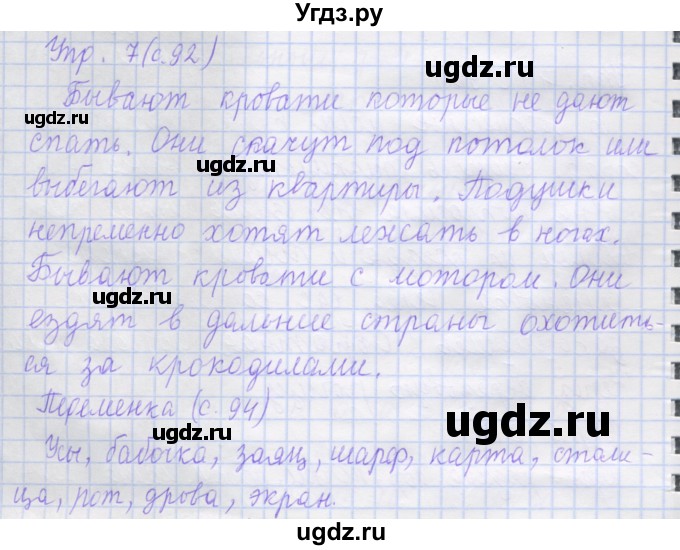 Угдз.ру
Упр. 7(с.92)
ugdz.ru
Бывают кровати которые не дают
ugdz.ru ugdz.ru
спать. Они скачут под потолок или
ugdz.ru
выбегают из квартиры. Подушки
непременно хотят лежать в ногах.
ugdz.ru
Бывают кровати с мотором. Они
ugdz.ru
ездят в дальние страны охотить-
ugdz.ru
ся за крокодилами.
Переменка (с. 94)
ugdz.ru
ugdz.ru
Усы, бабочка, заяц, шарф, карта, столи-
ца, рот, дрова, экран.
ugdz.ru